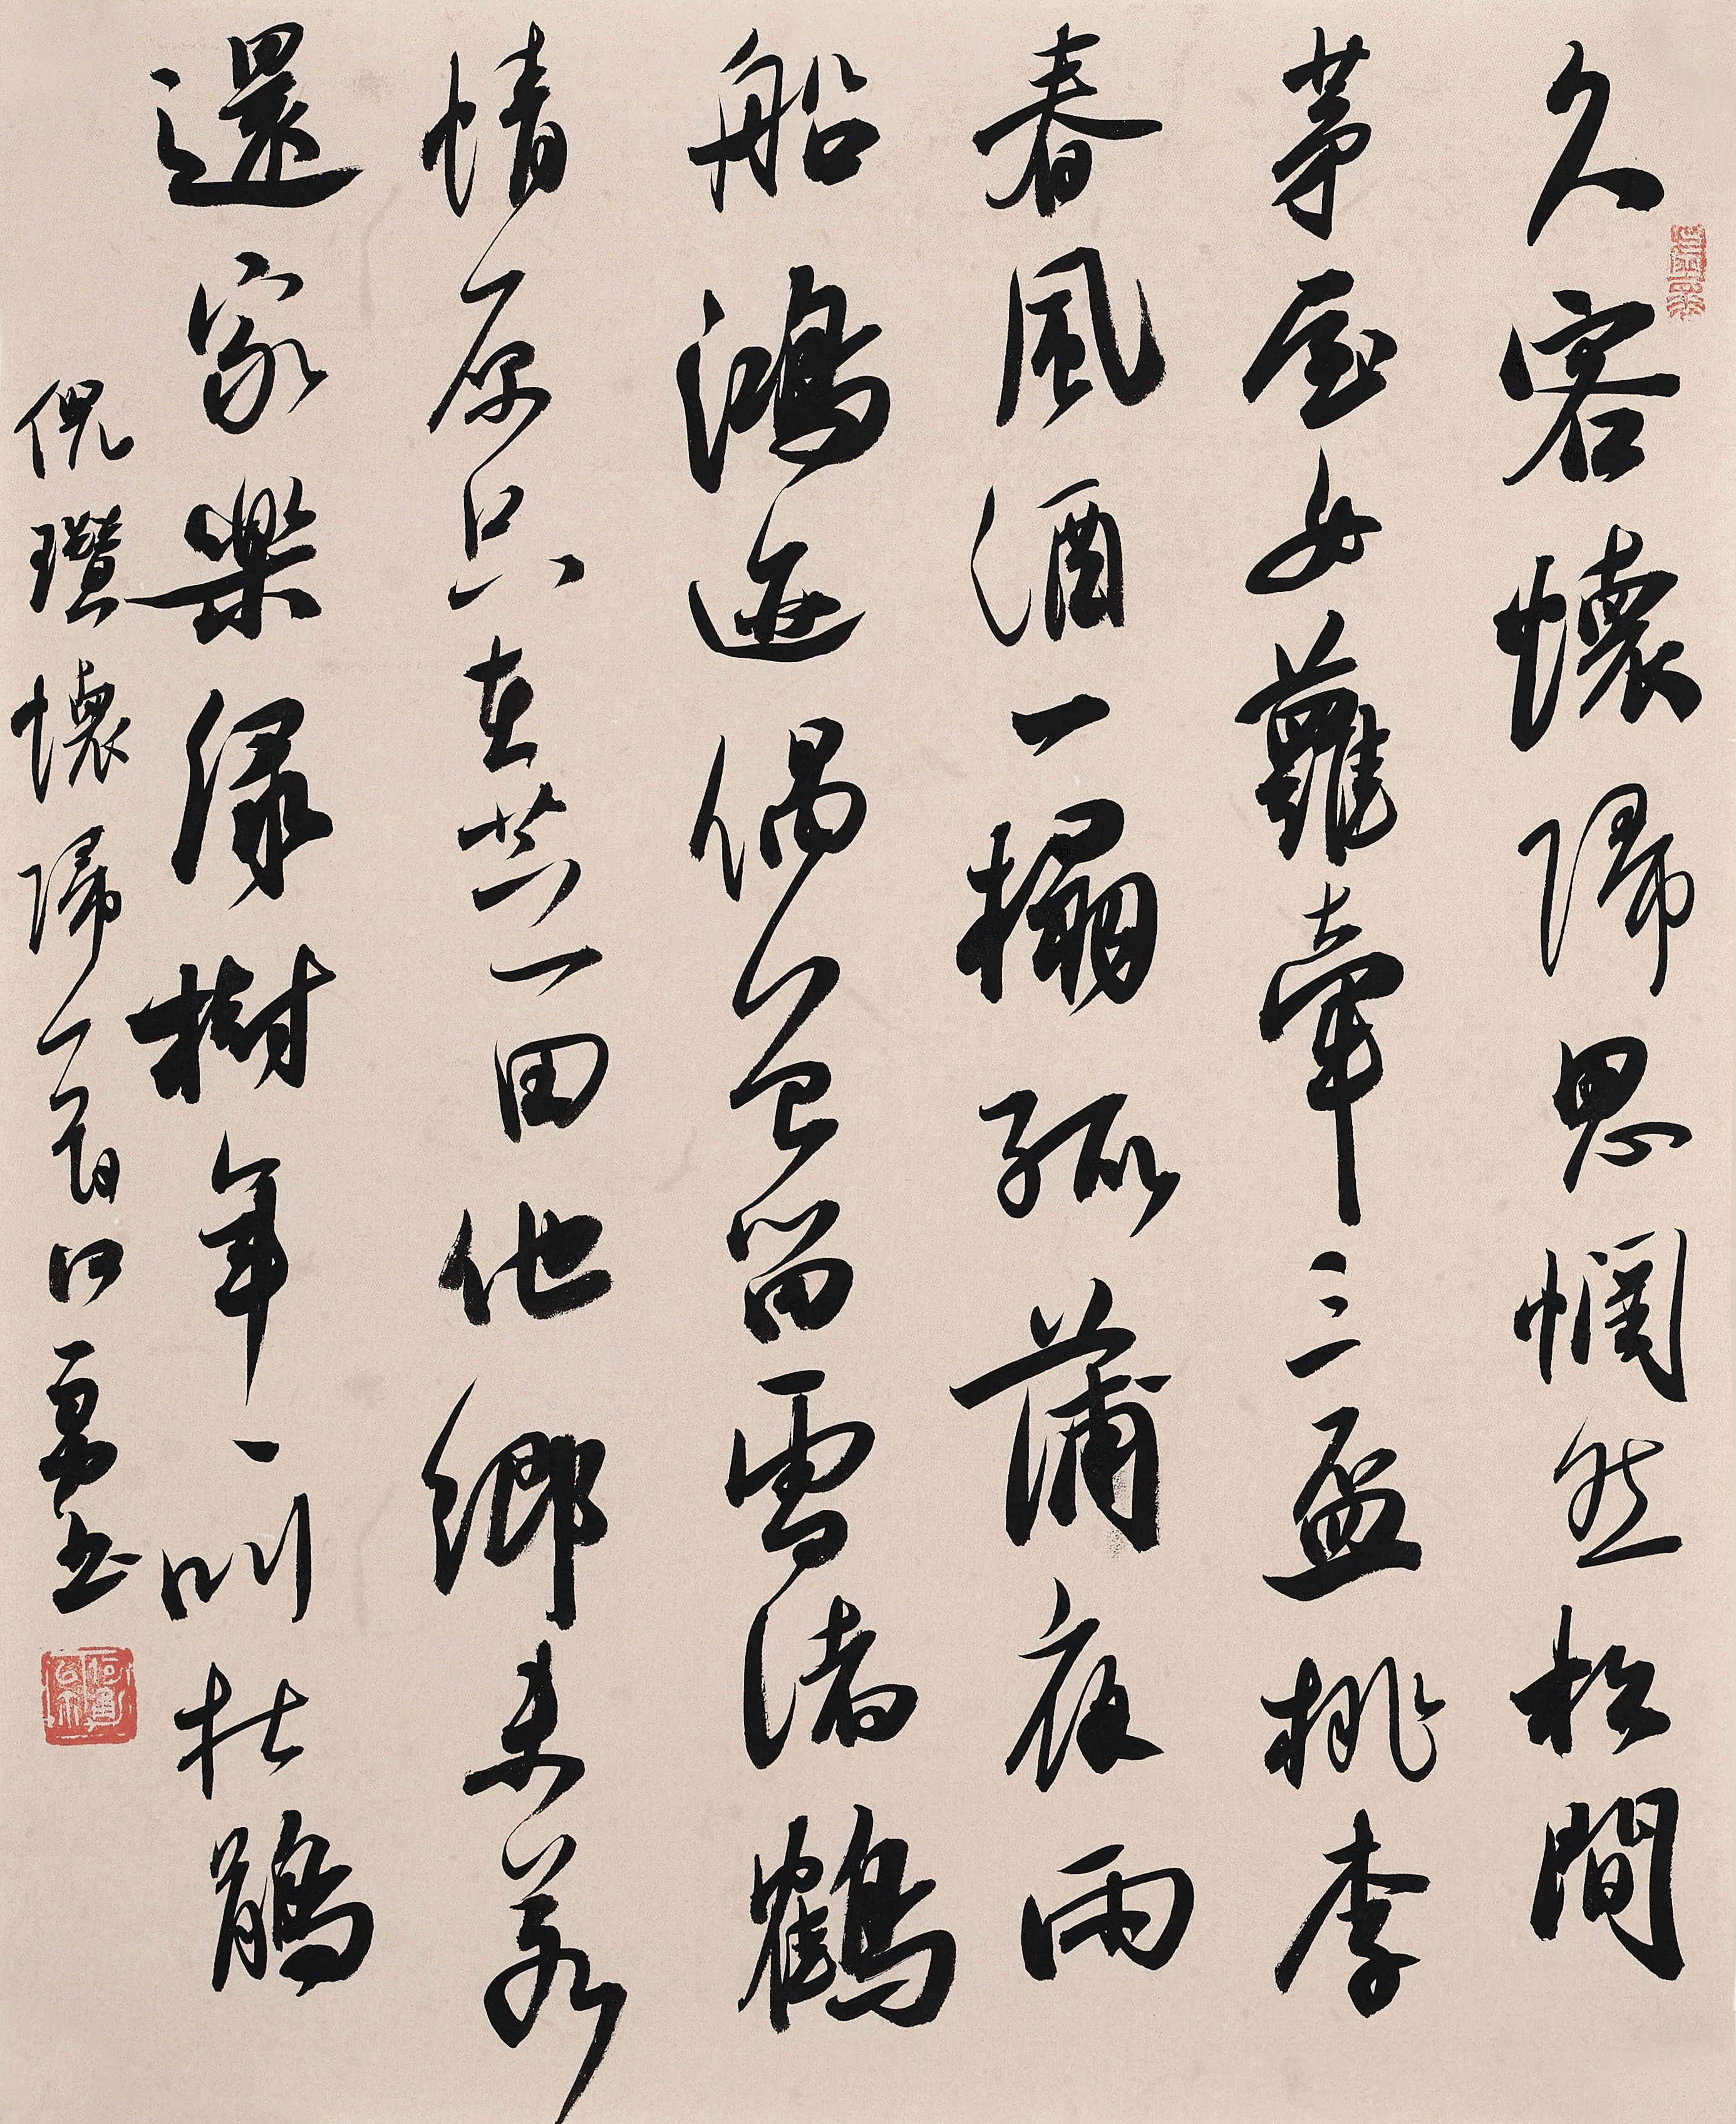 久客懷歸思惘然松間
茅屋女蘿牽三盃桃李
春風酒一榻菰蒲夜雨
船鴻迹偶曾留雪渚鶴
情原只在芝田他鄉未若
還家樂綠樹年年叫杜鵑
倪瓚懷歸一首 勇書